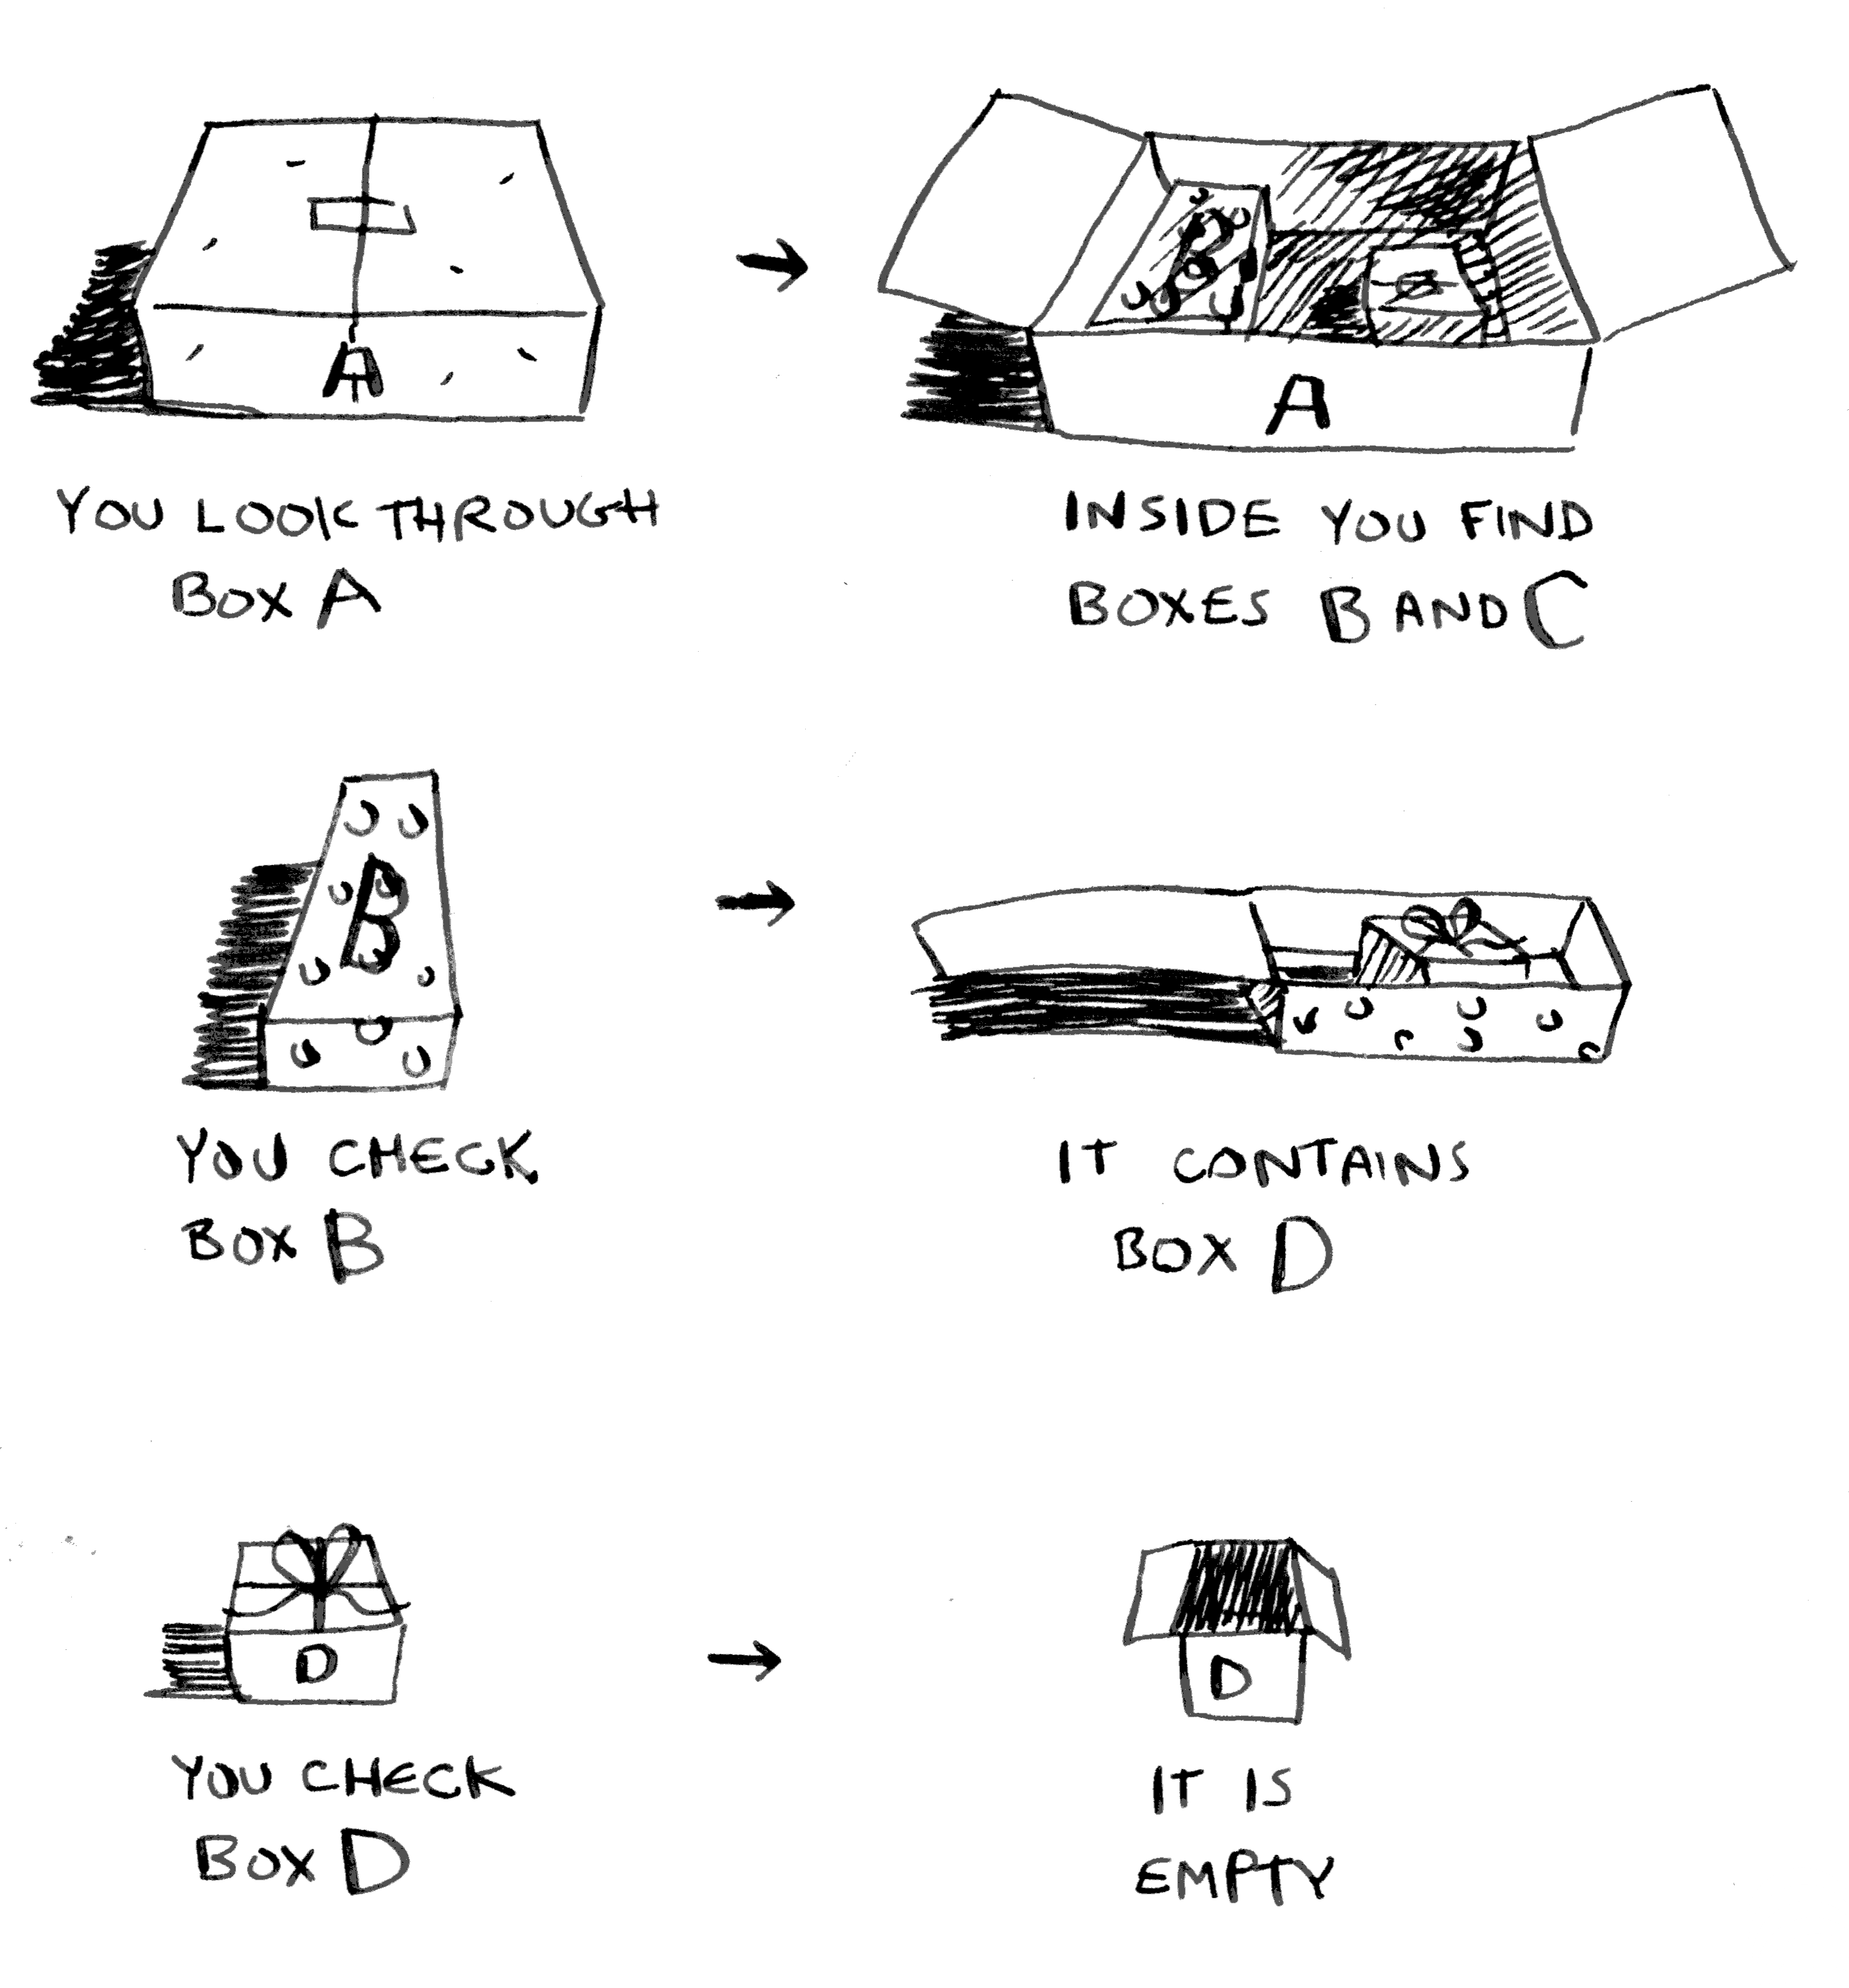 A
B
A
YOU LOOK THROUGH
BOX A
INSIDE YOU FIND
BOXES B AND C
B
YOU CHECK
BOX B
IT CONTAINS
BOX D
D
D
YOU CHECK
BOX D
IT IS
EMPTY